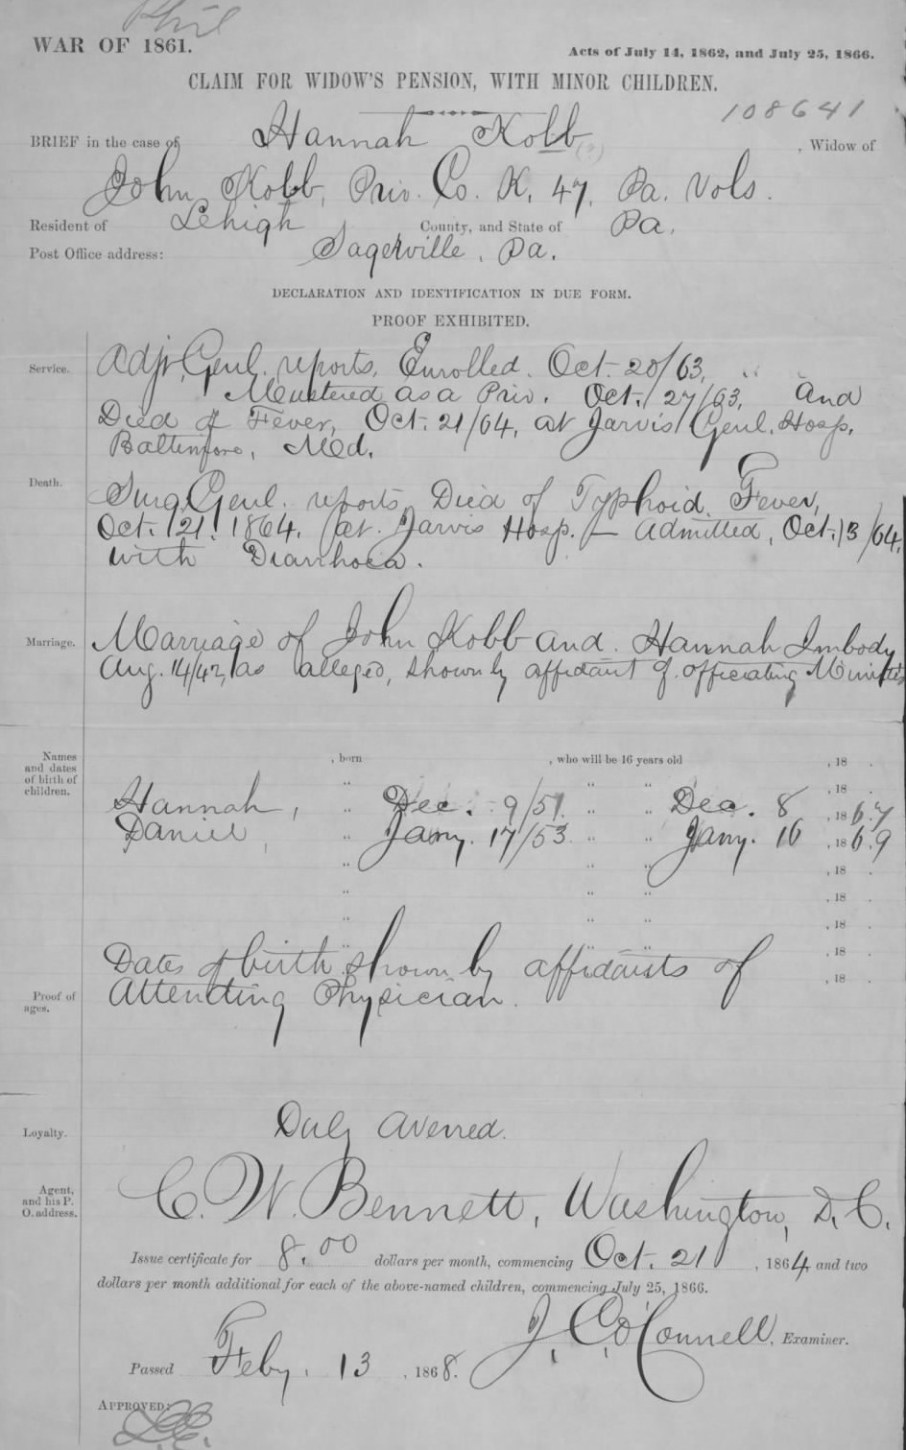 Phil
WAR OF 1861.
Acts of July 14, 1862, and July 25, 1866.
CLAIM FOR WIDOW'S PENSION, WITH MINOR CHILDREN.
108641
BRIEF in the case of Hannah Kobb (?), Widow of
John Kobb, Priv. Co. K, 47, Pa. Vols.
Resident of Lehigh County, and State of Pa.
Post Office address: Sagerville, Pa.
DECLARATION AND IDENTIFICATION IN DUE FORM.
PROOF EXHIBITED.
Service. Adjt. Genl. reports, Enrolled. Oct. 20/63, " "
Mustered as a Priv. Oct. 27/63, and
Died of Fever, Oct. 21/64, at Jarvis Genl. Hosp.
Baltimore, Md.
Death. Surg. Genl. reports, Died of Typhoid Fever,
Oct. 21, 1864. at Jarvis Hosp. – admitted, Oct. 13/64,
with Diarrhoea.
Marriage. Marriage of John Kobb and Hannah Imbody
Aug. 14/42, as alleged, shown by affidavit of officiating Minister
Names and dates of birth of children.
, born , who will be 16 years old , 18 .
" " " , 18 .
Hannah, " Dec. 9/51. " " Dec. 8 , 1867
Daniel, " Jany. 17/53 " " Jany. 16 , 1869
" " " , 18 .
" " " , 18 .
" " " , 18 .
" " " , 18 .
, 18 .
Dates of birth shown by affidavits of
Proof of ages. Attending Physician.
Loyalty. Duly averred.
Agent, and his P. O. address. C. W. Bennett, Washington, D. C.
Issue certificate for 8.00 dollars per month, commencing Oct. 21 , 1864, and two
dollars per month additional for each of the above-named children, commencing July 25, 1866.
J. C. O'Connell, Examiner.
Passed Feby. 13 , 1868.
APPROVED: